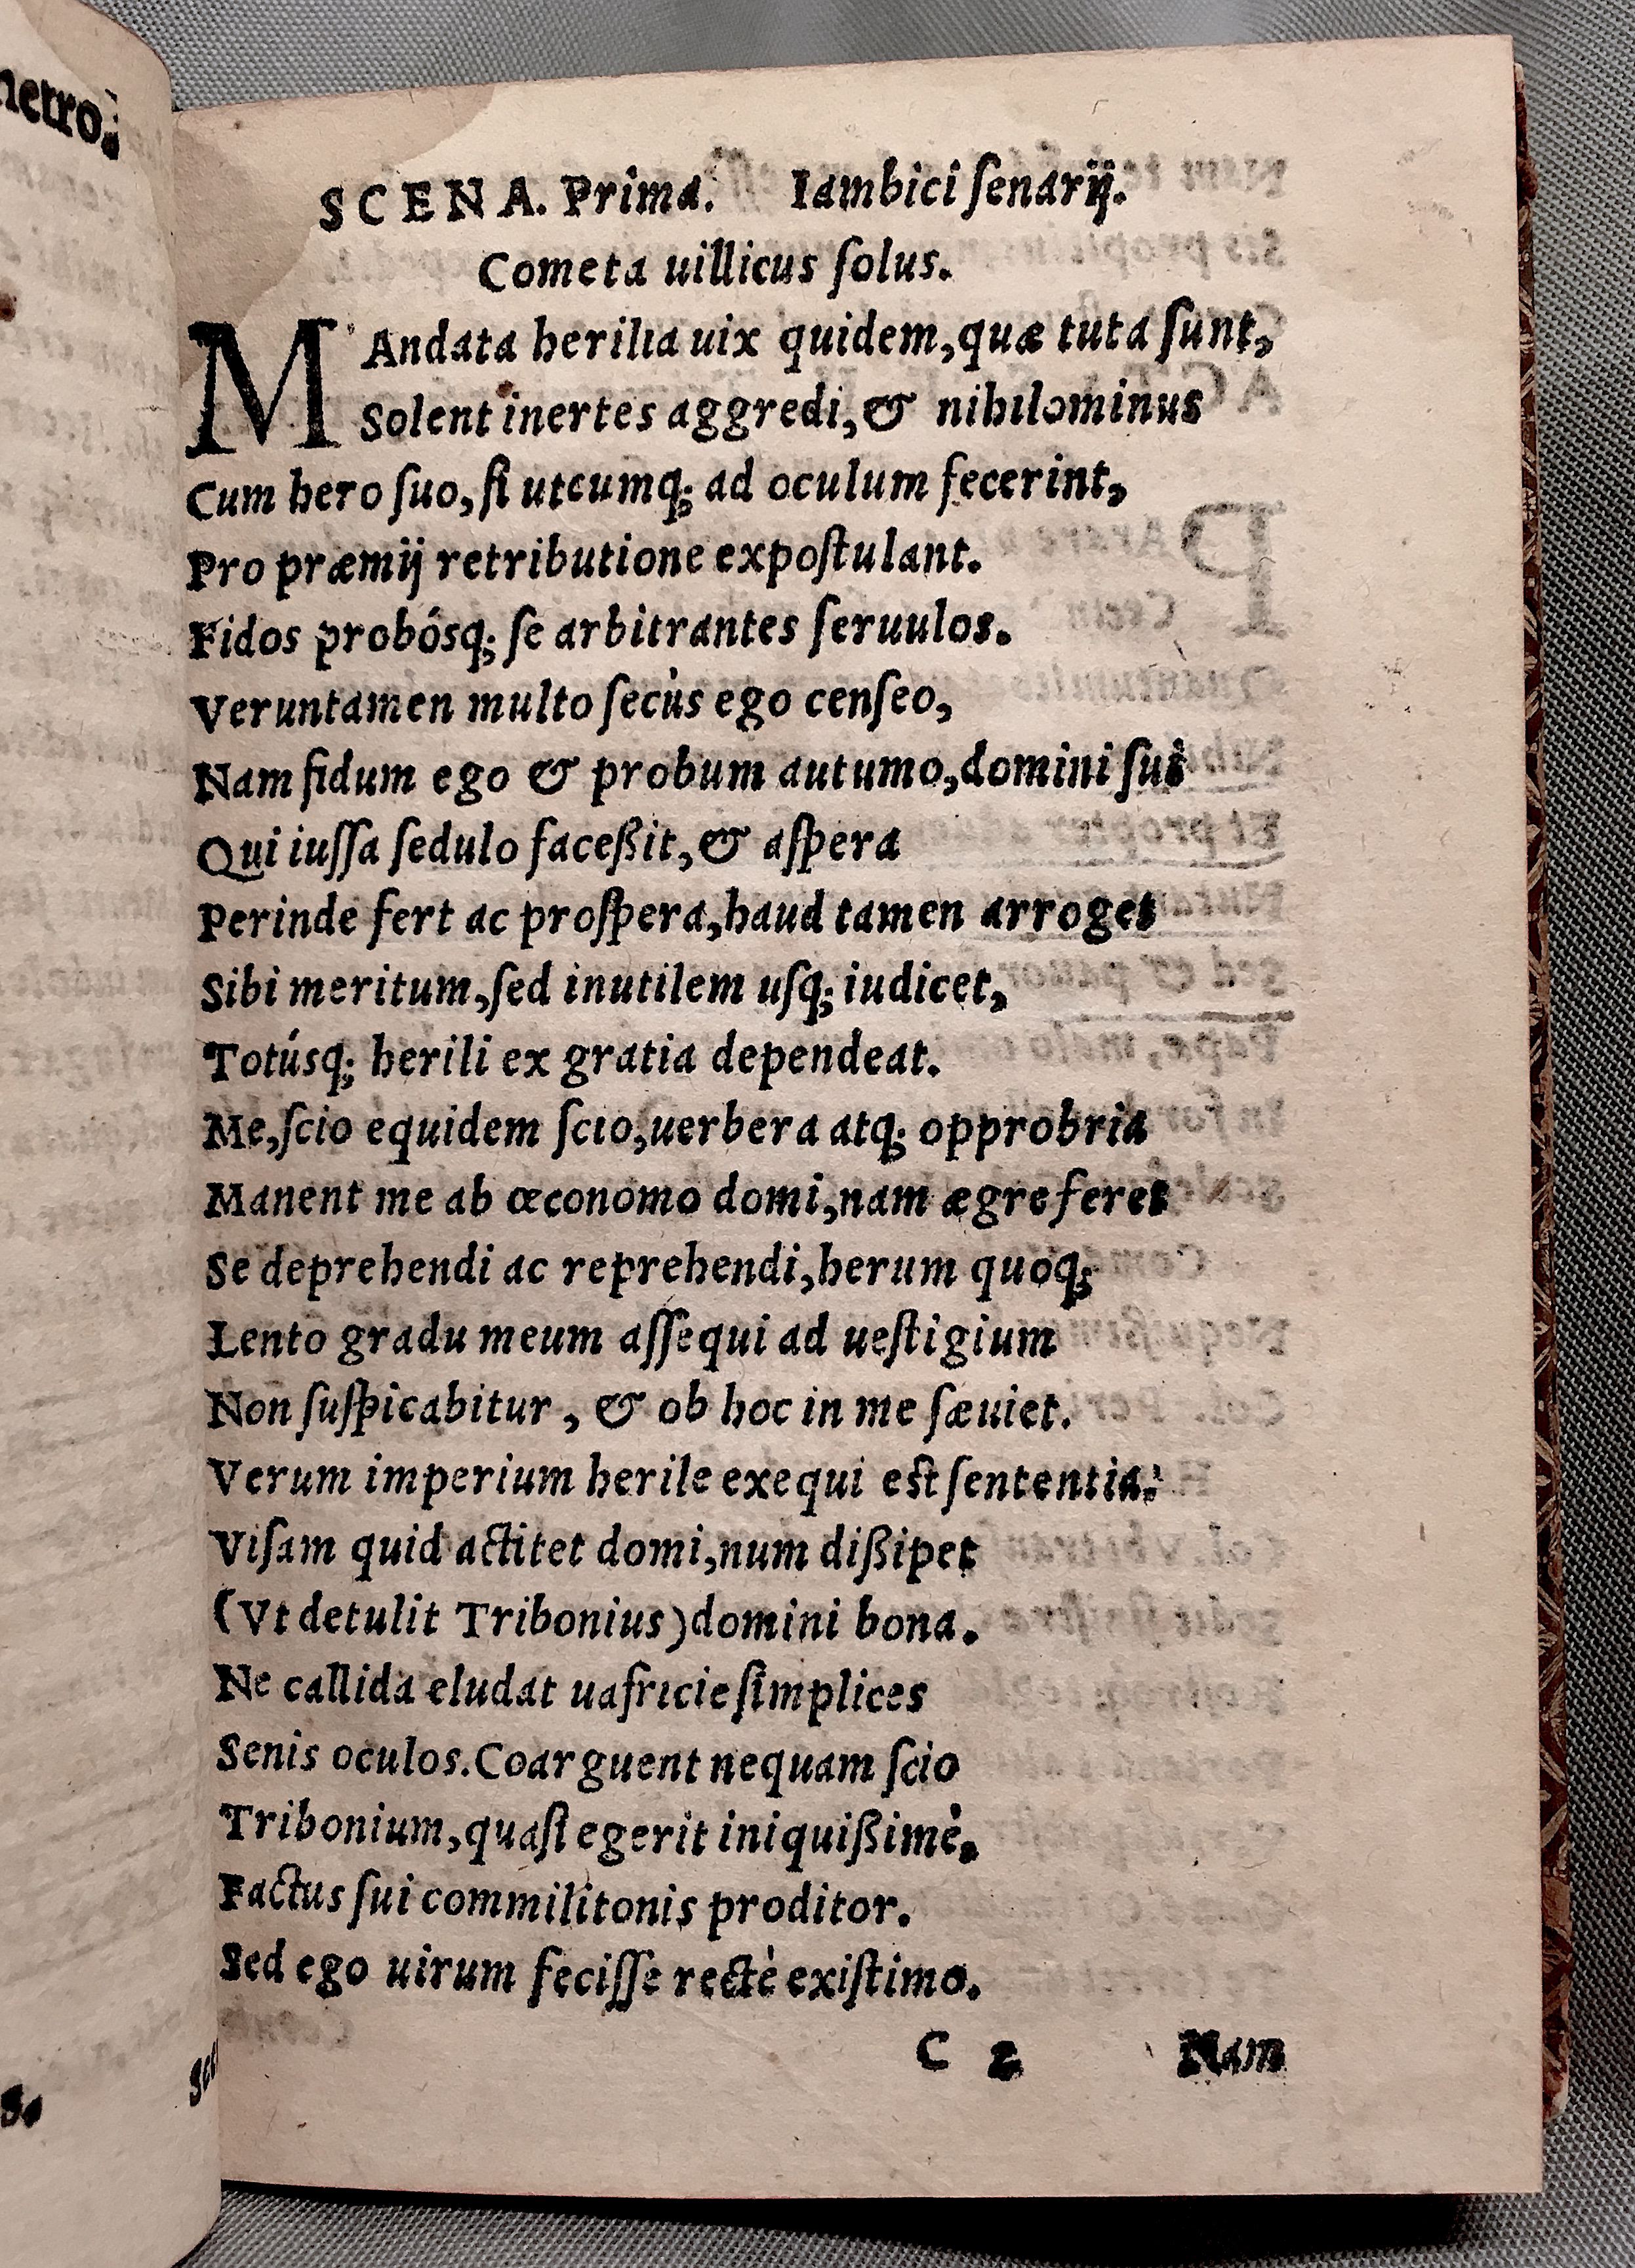 SCENA. Prima. Iambici ſenarij.
Cometa uillicus ſolus.
MAndata herilia uix quidem, quæ tuta ſunt,
Solent inertes aggredi, & nihilominus
Cum hero ſuo, ſi utcumq; ad oculum fecerint,
Pro præmij retributione expoſtulant.
Fidos probósq; ſe arbitrantes ſeruulos.
Veruntamen multo ſecùs ego cenſeo,
Nam fidum ego & probum autumo, domini ſui
Qui iuſſa ſedulo faceßit, & aſpera
Perinde fert ac proſpera, haud tamen arroget
Sibi meritum, ſed inutilem uſq; iudicet,
Totúsq; herili ex gratia dependeat.
Me, ſcio equidem ſcio, uerbera atq; opprobria
Manent me ab œconomo domi, nam ægre feret
Se deprehendi ac reprehendi, herum quoq;
Lento gradu meum aſſequi ad ueſtigium
Non ſuſpicabitur, & ob hoc in me ſæuiet.
Verum imperium herile exequi est ſententia:
Viſam quid actitet domi, num dißipet
(Vt detulit Tribonius) domini bona.
Ne callida eludat uafricie ſimplices
Senis oculos. Coarguent nequam ſcio
Tribonium, quaſi egerit iniquißimè,
Factus ſui commilitonis proditor.
Sed ego uirum feciſſe rectè exiſtimo.
C 2 Nam
netro: